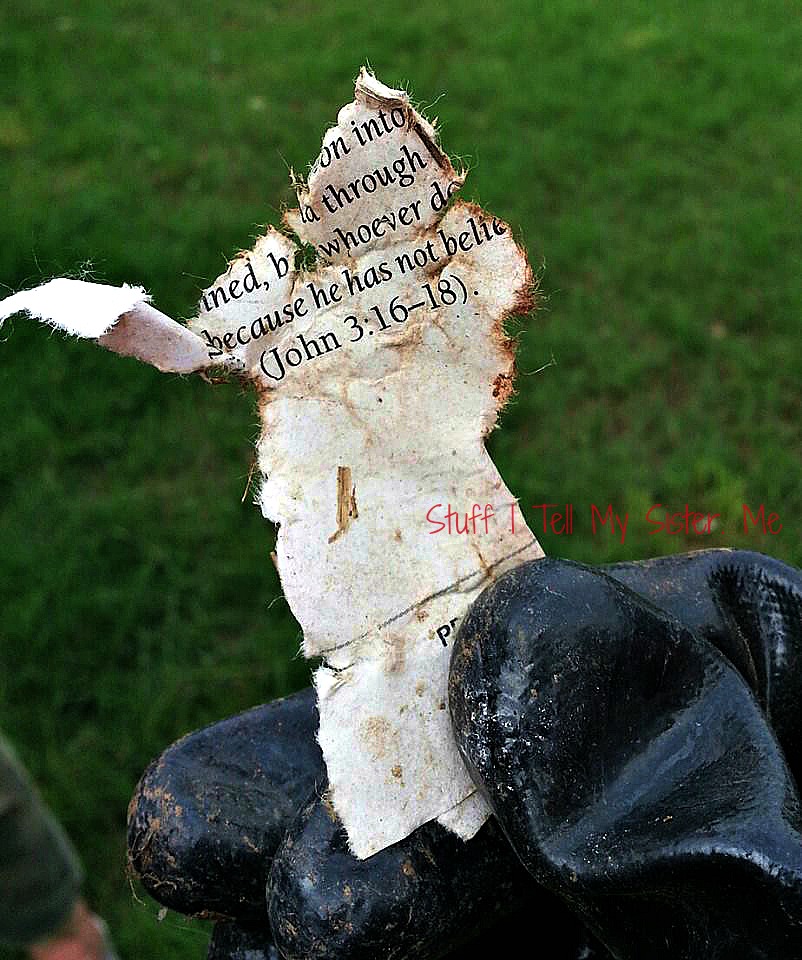 on into
through
whoever do
ined, b
because he has not belie
(John 3:16–18).
Stuff I Tell My Sister Me
PR